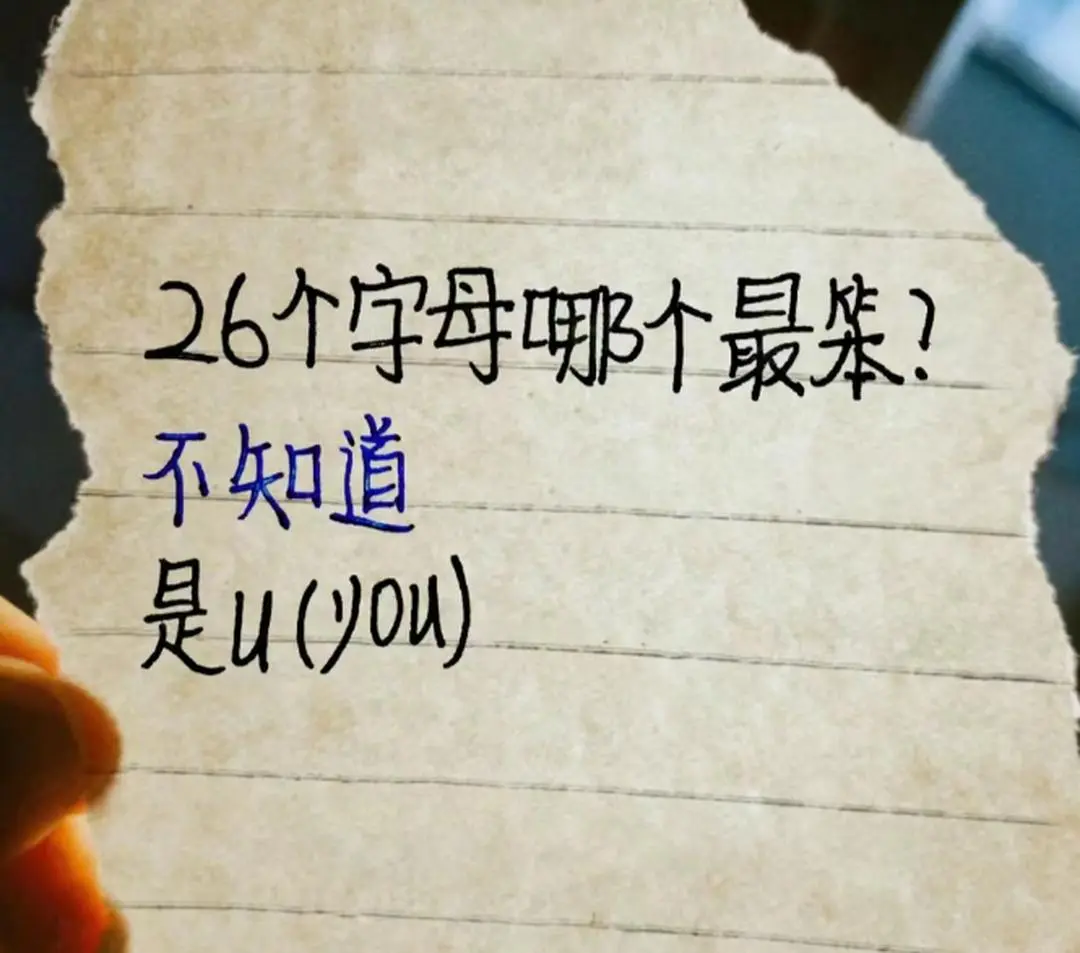 26个字母哪个最笨?
不知道
是u(you)